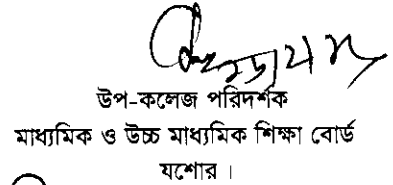 উপ-কলেজ পরিদর্শক
মাধ্যমিক ও উচ্চ মাধ্যমিক শিক্ষা বোর্ড
যশোর ।